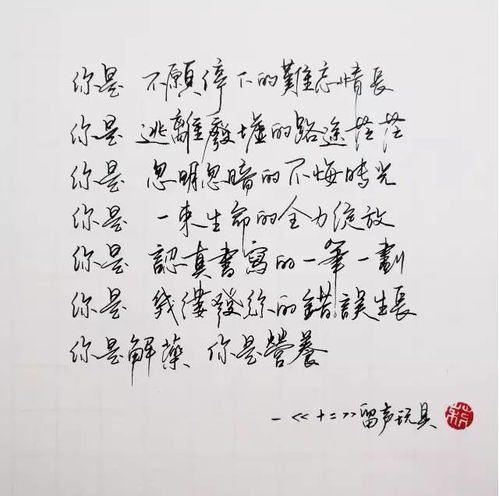 你是 不願停下的難忘情長
你是 逃離廢墟的路途茫茫
你是 忽明忽暗的不悔時光
你是 一束生命的全力綻放
你是 認真書寫的一筆一劃
你是 幾縷發絲的錯誤生長
你是解藥 你是營養
—<<十二>>留声玩具